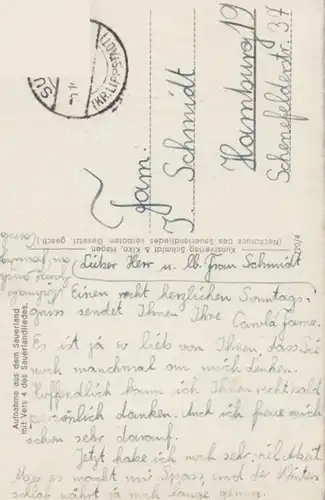 Fam.
J. Schmidt
Hamburg 19
Schenefelderstr. 37
(KR. LIPPSTADT)
SU
Kunstverlag Schmidt & Kiko, Hagen
(Nachdruck des Sauerlandliedes verboten. Gesetzl. gesch.)
420/4
Aufnahme aus dem Sauerland
mit Vers 4 des Sauerlandliedes.
Lieber Herr u. lb. Frau Schmidt
Einen recht herzlichen Sonntags-
gruss sendet Ihnen Ihre Carola
Es ist ja so lieb von Ihnen dass Sie
noch manchmal an mich denken.
Hoffendlich kann ich Ihnen recht bald
persönlich danken. Auch ich freue mich
schon sehr darauf.
Jetzt habe ich noch sehr viel Arbeit
Aber es macht mir Spass, und der Winter
schlaf währt ja noch lange genug.